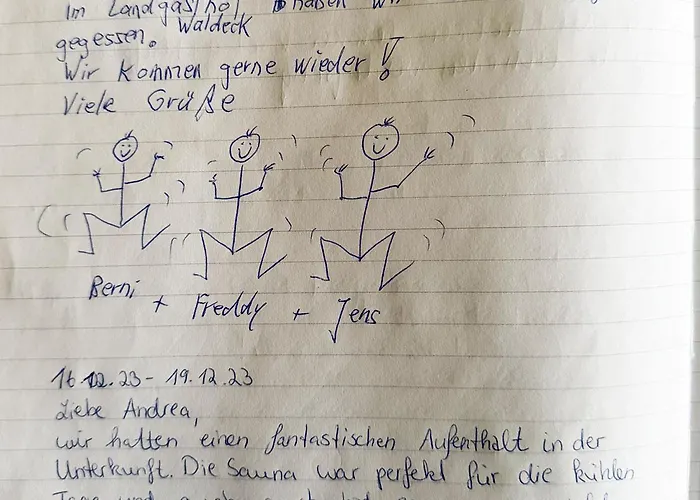 Im Landgasthof haben wir
Waldeck
gegessen.
Wir kommen gerne wieder!
Viele Grüße
Berni + Freddy + Jens
16.12.23 - 19.12.23
Liebe Andrea,
wir hatten einen fantastischen Aufenthalt in der
Unterkunft. Die Sauna war perfekt für die kühlen
Tage und